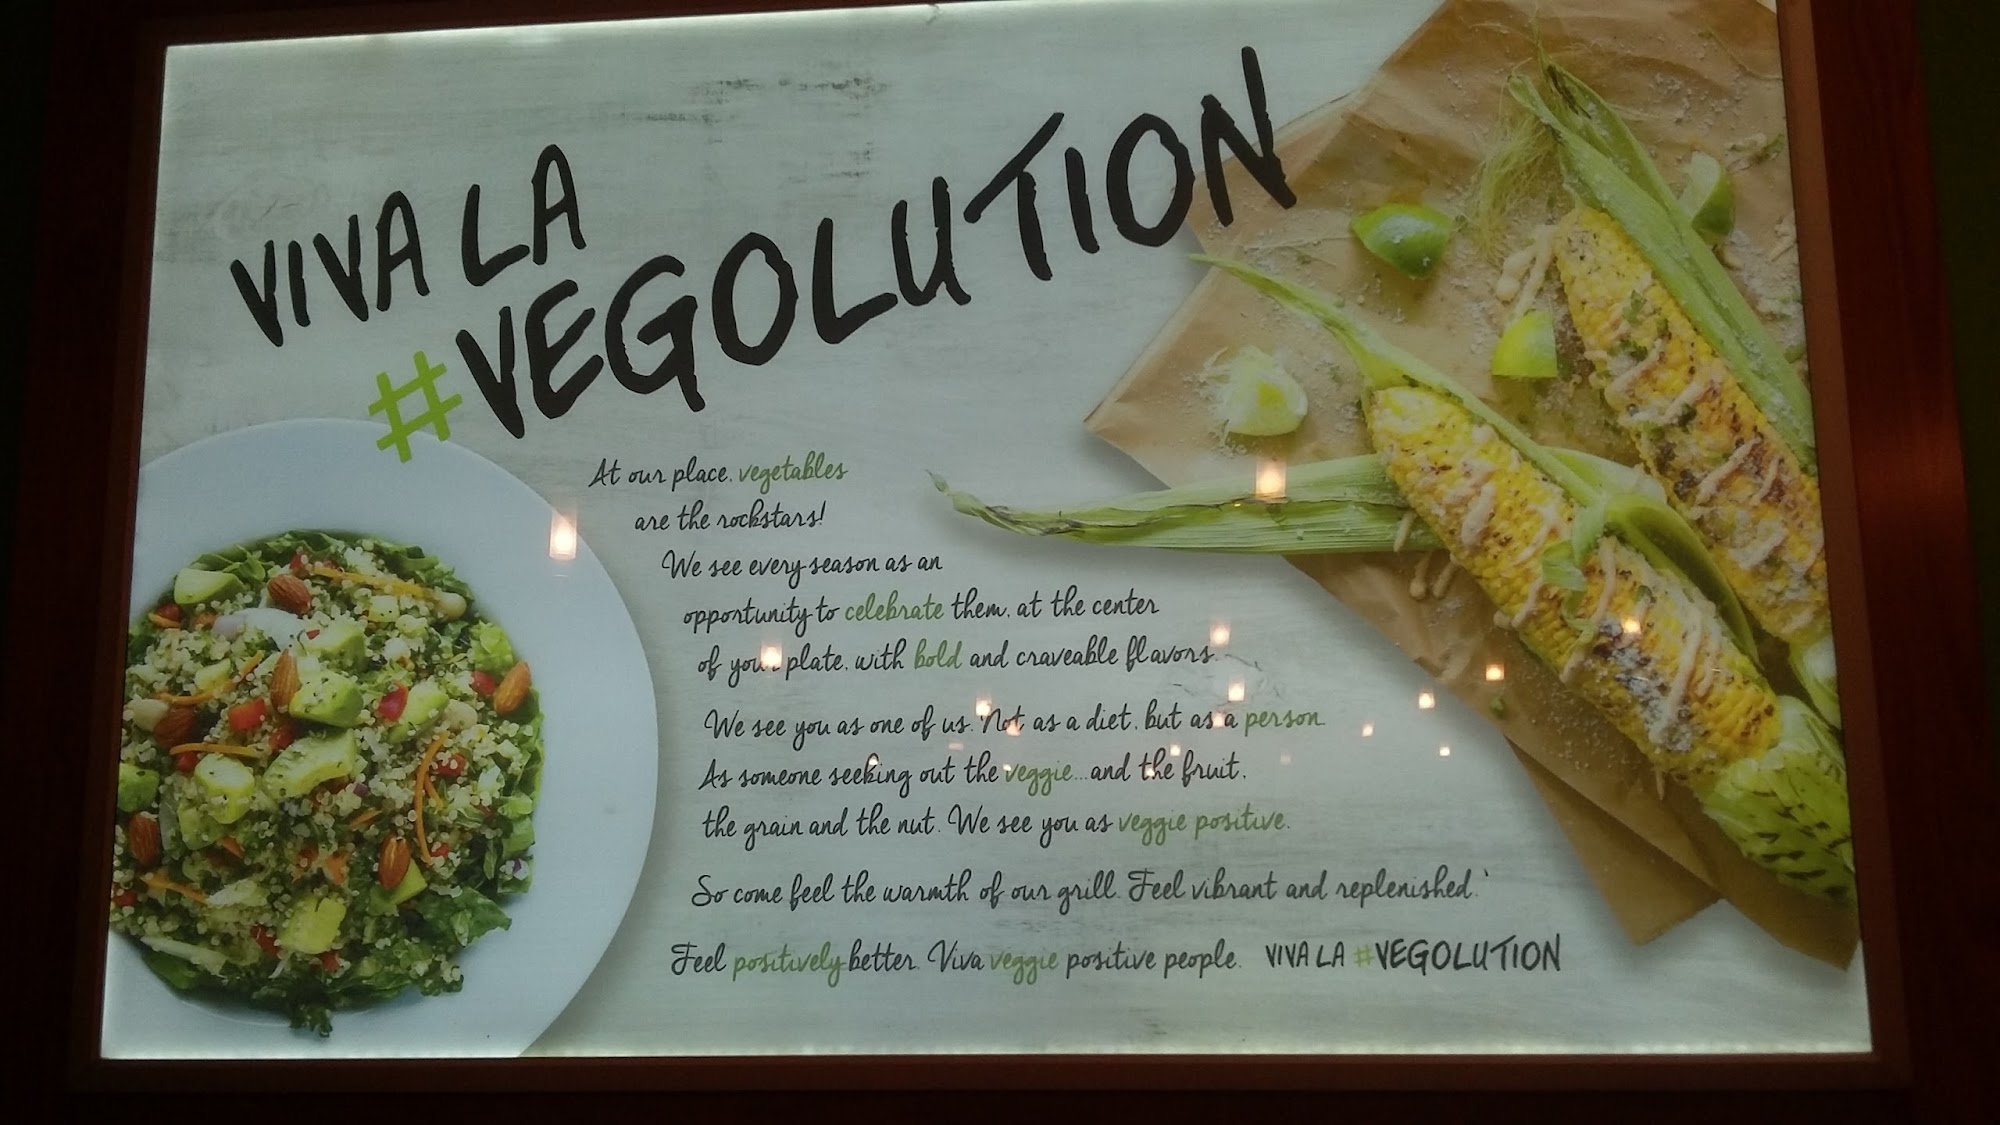 VIVA LA
#VEGOLUTION
At our place, vegetables
are the rockstars!
We see every season as an
opportunity to celebrate them, at the center
of your plate, with bold and craveable flavors.
We see you as one of us. Not as a diet, but as a person.
As someone seeking out the veggie...and the fruit,
the grain and the nut. We see you as veggie positive.
So come feel the warmth of our grill. Feel vibrant and replenished.
Feel positively better. Viva veggie positive people. VIVA LA #VEGOLUTION